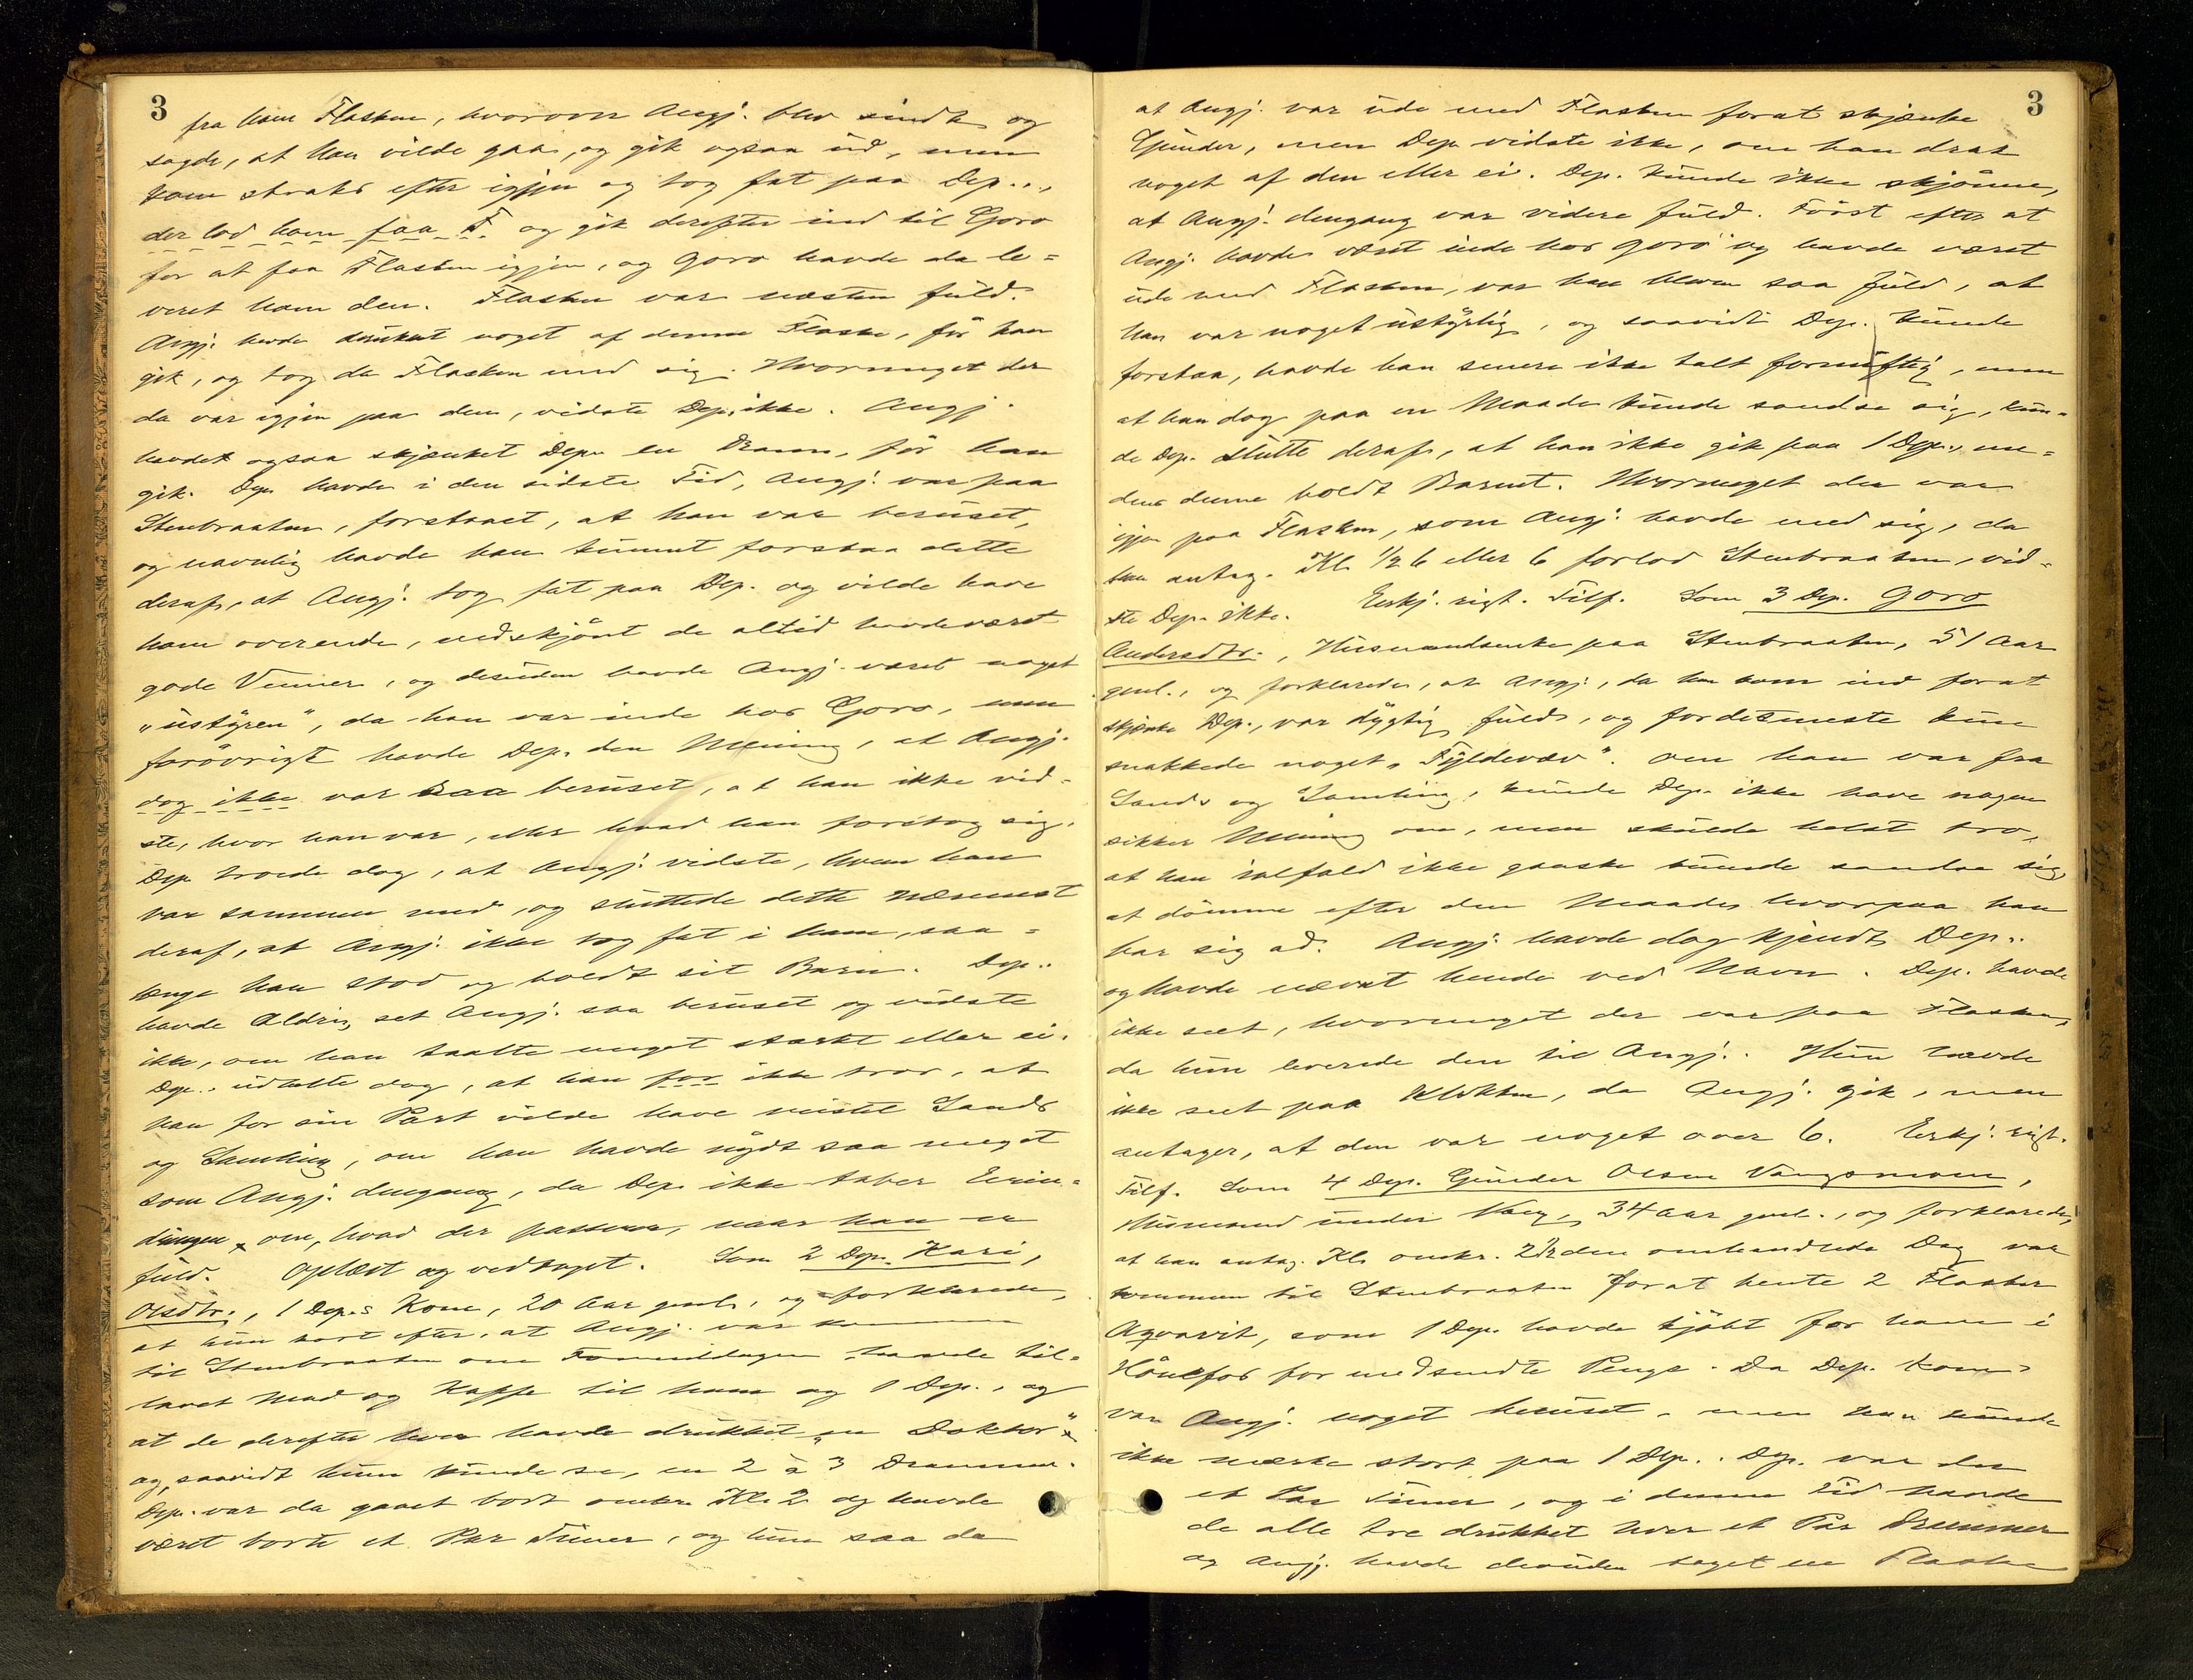 3
fra ham Flasken, hvorover Angj. blev sindt og
sagde, at han vilde gaa, og gik ogsaa ud, men
kom straks efter igjen og tog fat paa Dep.,
der lod ham faa F. og gik derefter ind til Goro
for at faa Flasken igjen, og Goro havde da le=
veret ham den. Flasken var næsten fuld.
Angj. havde drukket noget af denne Flaske, før han
gik, og tog da Flasken med sig. Hvormeget der
da var igjen paa den, vidste Dep. ikke. Angj.
havde ogsaa skjænket Dep. en Dram, før han
gik. Dep. havde i den sidste Tid, Angj. var paa
Stenbraaten, forstaaet, at han var beruset,
og navnlig havde han kunnet forstaa dette
deraf, at Angj. tog fat paa Dep. og vilde have
ham overende, uedskjønt de altid havde været
gode Venner, og desuden havde Angj. været noget
„ustyren“, da han var inde hos Goro, men
forøvrigt havde Dep. den Mening, at Angj.
dog ikke var saa beruset, at han ikke vid=
ste, hvor han var, eller hvad han foretog sig.
Dep. troede dog, at Angj. vidste, hvem han
var sammen med, og sluttede dette nærmest
deraf, at Angj. ikke tog fat i ham, saa=
længe han stod og holdt sit Barn. Dep.
havde Aldrig set Angj. saa beruset og vidste
ikke, om han taalte meget stærkt eller ei.
Dep. udtalte dog, at han for ikke tror, at
han for sin Part vilde have mistet Sands
og Samling, om han havde nydt saa meget
som Angj. dengang, da Dep. ikke taber Erin=
dringen om, hvad der passerer, naar han er
fuld. Oplæst og vedtaget. Som 2 Dep. Kari
Olsdtr., 1 Dep.s Kone, 20 Aar gml., og forklarede,
at hun kort efter, at Angj. var kommen
til Stenbraaten om Formiddagen havde til=
lavet Mad og Kaffe til ham og 1 Dep., og
at de derefter hver havde drukket „en Doktor“
og, saavidt hun kunde se, en 2 à 3 Drammer.
Dep. var da gaaet bort omkr. Kl. 2 og havde
været borte et Par Timer, og hun saa da
3
at Angj. var ude med Flasken forat skjænke
Gunder, men Dep. vidste ikke, om han drak
noget af den eller ei. Dep. kunde ikke skjønne,
at Angj. dengang var videre fuld. Først efter at
Angj. havde været inde hos Goro og havde været
ude med Flasken, var han bleven saa fuld, at
han var noget ustyrlig, og saavidt Dep. kunde
forstaa, havde han senere ikke talt fornuftig, men
at han dog paa en Maade kunde sandse sig, kun=
de Dep. slutte deraf, at han ikke gik paa 1 Dep., me=
dens denne holdt Barnet. Hvormeget der var
igjen paa Flasken, som Angj. havde med sig, da
han antag. Kl. ½6 eller 6 forlod Stenbraaten, vid=
ste Dep. ikke. Erkj. rigt. Tilf. Som 3 Dep. Goro
Andersdtr., Husmandsenke paa Stenbraaten, 51 Aar
gml., og forklarede, at Angj., da han kom ind forat
skjænke Dep., var dygtig fuld, og fordetmeste kun
snakkede noget „Fyldevæv“. Om han var fra
Sands og Samling, kunde Dep. ikke have nogen
sikker Mening om, men skulde helst tro,
at han ialfald ikke ganske kunde sandse sig
at dømme efter den Maade, hvorpaa han
bar sig ad. Angj. havde dog kjendt Dep.
og havde nævnt hende ved Navn. Dep. havde
ikke seet, hvormeget der var paa Flasken,
da hun leverede den til Angj. Hun havde
ikke seet paa Klokken, da Angj. gik, men
antager, at den var noget over 6. Erkj. rigt.
Tilf. Som 4 Dep. Gunder Olsen Vangsmoen,
Husmand under Vang, 34 Aar gml., og forklarede,
at han antag. Kl. omkr. 2½ den omhandlede Dag var
kommen til Stenbraaten forat hente 2 Flasker
Aqvavit, som 1 Dep. havde kjøbt for ham i
Hönefos for medsendte Penge. Da Dep. kom,
var Angj. noget beruset, men han kunde
ikke mærke stort paa 1 Dep. Dep. var der
et Par Timer, og i denne Tid havde
de alle tre drukket hver et Par Drammer
og Angj. havde desuden taget en Flaske